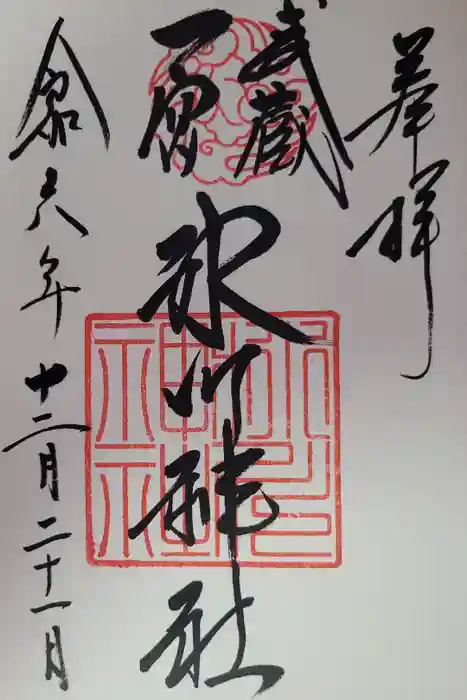 奉拝
武蔵
一宮
氷川神社
令和六年十二月二十一日
氷川神社